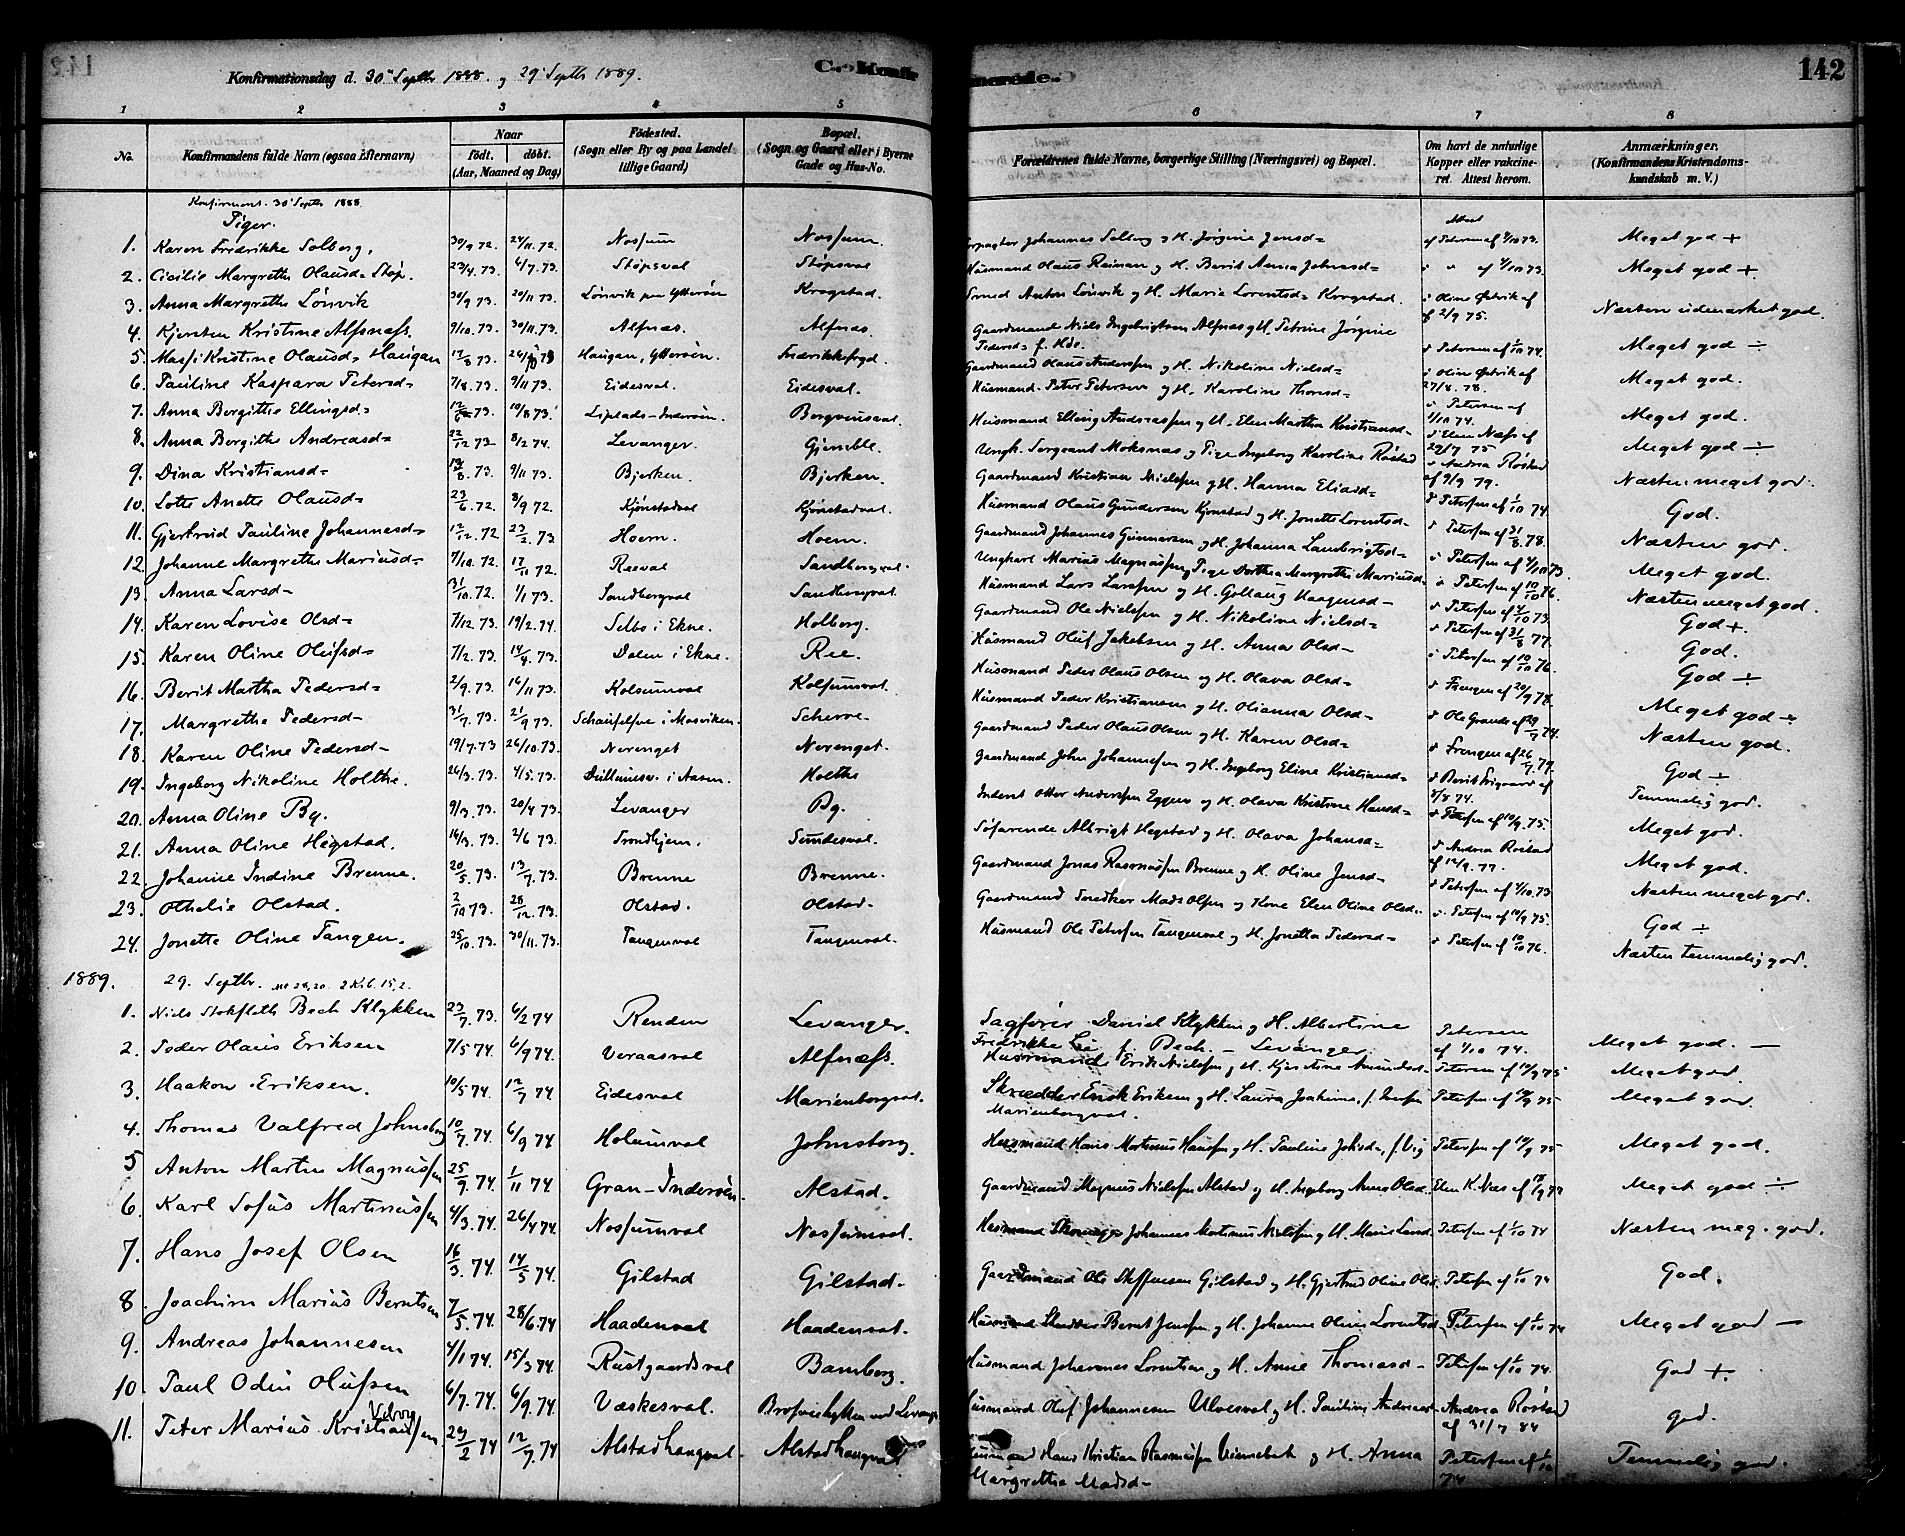 Konfirmationsdag d. 30' Septbr 1888. og 29' Septbr 1889.
C. Konfirmerede.
142
1 2 3 4 5 6 7 8
No.
Konfirmandens fulde Navn (ogsaa Efternavn)
Naar
födt. döbt.
(Aar, Maaned og Dag)
Födested.
(Sogn eller By og paa Landet
tillige Gaard)
Bopæl.
(Sogn og Gaard eller i Byerne
Gade og Hus-No.
Forældrenes fulde Navne, borgerlige Stilling (Næringsvei) og Bopæl.
Om havt de naturlige
Kopper eller vakcine-
ret. Attest herom.
Anmærkninger.
(Konfirmandens Kristendoms-
kundskab m. V.)
Konfirmant. 30' Septbr 1888.
Piger.
1. Karen Fredrikke Solberg. 30/9 72. 24/11. 72. Nossum Nossum. Johannes Solberg og H. Jørgine Jensd= af Petersen af 4/10 73. Meget god +
2. Cicilie Margrethe Olausd= Støp. 23/4. 73. 6/7. 73. Støpsval Støpsval Husmand Olaus Reinan og H. Berit Anna Johnsd= af 4/10 73. Meget god +
3. Anna Margrethe Lönvik 30/9 73. 20/11 73. Lönvik paa Ytterøen Krogstad. Smed Anton Lönvik og H. Marie Lorentsd= Krogstad. Oline Østvik af 2/9 75. Næsten udmærket god.
4. Kjersten Kristine Alfnæss 9/10. 73. 30/11. 73. Alfnæs. Alfnæs. Gaardmand Niels Ingebrigtsen Alfnæs og H. Petrine Jörgine Pedersd= f. Hoe. Petersen af 1/10 74. Meget god ÷
5. Massi Kristine Olausd= Haugan 17/8 73. Haugan, Ytterøen. Fredrikkefryd. Gaardmand Olaus Anderssen og H. Nikoline Nielsd= Oline Østvik af 27/8. 78. Meget god.
6. Pauline Kaspara Petersd= 7/8. 73. 9/11 73. Eidesval. Eidesval. Husmand Peter Petersen og H. Karoline Thoresd= Petersen af 1/10 74. Meget god.
7. Anna Bergitte Ellingsd= 73. 10/8 73. Inderøen. Husmand Elling Andreassen og H. Elen Martha Kristiansd= Elen Næss af 29/7 75 Meget god ÷
8. Anna Bergitte Andreasd= 22/12 73 8/2 74. Levanger. Gjemble. Ungk. Sergeant Moksnæs og Pige Ingeborg Karoline Röstad Andrea Röstad af 9/9 79. Næsten meget god.
9. Dina Kristiansd= 73. 9/11 73. Bjerken. Bjerken. Gaardmand Kristian Nielssen og H. Hanna Eliasd= Petersen af 1/10 74. God.
10. Lotte Anette Olausd= 23/6. 72. 8/9 72. Kjönstadval Kjönstadval. Husmand Olaus Gundersen Kjönstad og H. Jonette Lorentsd= Petersen af 31/8. 78. Næsten god.
11. Gjertrud Pauline Johannesd= 12/12. 72 23/2. 73. Hoem. Hoem. Gaardmand Johannes Gunnarsen og H. Johanna Lambrigtsd= Petersen af 4/10 73. Meget god.
12. Johanne Margrethe Mariusd= 7/10. 72 17/11 72. Reeval Sandborgval. Ungkarl Marius Magnussen og Pige Dorthea Margrethe Mariusd= Petersen af 10/10 76. Næsten meget god.
13. Anna Larsd= 31/10. 72. 1/1 73. Sandborgval Sandborgval. Husmand Lars Larssen og H. Gollaug Haagensd= Petersen af 4/10 73. God +.
14. Karen Lovise Olsd= 7/12. 73. 19/2. 74. Selbo i Ekne. Holberg. Gaardmand Ole Nielssen og H. Nikoline Nielsd= Petersen af 31/8 77. God.
15. Karen Oline Olufsd= 7/2. 73. 14/4. 73. Dalen i Ekne. Ree. Husmand Oluf Jakobsen og H. Anna Olsd= Petersen af 10/10 76. God ÷
16. Berit Martha Pedersd= 2/9. 73. 16/11 73. Kolsumval Kolsumval. Husmand Peder Olaus Olsen og H. Olava Olsd= Frengen af 20/9 78. Meget god ÷
17. Margrethe Pedersd= 31/7. 73. 21/9 73. i Mosviken. Scherve. Husmand Peder Kristiansen og H. Olianna Olsd= Ole Grande af 29/7 74. Næsten god.
18. Karen Oline Pedersd= 19/7. 73 26/10. 73. Norenget Norenget. Gaardmand Peder Olaus Olsen og H. Karen Olsd= Frengen af 26/7. 79. God ÷
19. Ingeborg Nikoline Holthe. 26/3. 73. 4/5. 73. i Aasen. Holthe Gaardmand John Johannesen og H. Ingeborg Eline Kristiansd= af 8/8 74. Temmelig god.
20. Anna Oline By. 9/3. 73. 20/4 73. Levanger By. Inderst Otter Anderssen Eggen og H. Olava Kristine Hansd= Petersen af 10/9. 75. Meget god.
21. Anna Oline Hegstad. 16/3. 73. 2/6 73. Trondhjem. Sundesval. Söfarende Albrigt Hegstad og H. Olava Johansd= Andrea Rostad af 12/9. 77. Meget god.
22 Johanne Indine Brenne. 20/5. 73. 13/7. 73. Brenne Brenne. Gaardmand Jonas Rasmussen Brenne og H. Oline Jensd= Petersen af 4/10. 73 Næsten meget god.
23. Othelie Olstad. 2/10 73. 28/12. 73. Olstad. Olstad. Gaardmand Snedker Mads Olsen og Kone Elen Oline Olsd= Petersen af 10/9 75. God ÷
24. Jonette Oline Tangen. 25/10. 73. 30/11. 73. Tangenval Tangenval. Husmand Ole Petersen Tangenval og H. Jonetta Pedersd= Petersen af 10/10 76. Næsten temmelig god.
1889. 29. Septbr.
1. Niels Stokfleth Bech Klykken 23/7. 73. 6/2 74 Levanger. Sagförer Daniel Klykken og H. Albertine Fredrikke f. Bech - Levanger Petersen af 1/10 74. Meget god. -
2. Peder Olaus Eriksen 7/5 74. 6/9 74. Veraasval Alfnæss. Husmand Erik Nielssen og H. Kjerstine Amundsd= Petersen af 10/9 75 Meget god.
3. Haakon Eriksen. 10/5 74. 12/7 74 Eidesval Marienborgval. Skrædder Enok Eriksen og H. Laura Joakime Marienborgval. Petersen af 10/9 75 Meget god.
4. Thomas Valfred Johnsborg 10/7. 74. 6/9 74 Holumval Johnsborg. Husmand Hans Martinus Hansen og H. Pauline Johsd=, f. Vig Petersen af 10/9 75 Meget god.
5 Anton Martin Magnussen 25/9. 74. 1/11 74 Gran-Inderøen. Alstad. Gaardmand Magnus Nielssen Alstad og H. Ingeborg Anna Olsd. Elen K. Næs Meget god ÷
6. Karl Sofus Martinussen 4/3. 74. 26/4 74. Nossumval Nossumval. Husmand Johannes Martinus Nielssen og H. Marie Petersen af 1/10 74 Næsten meg. god.
7. Hans Josef Olsen 16/3. 74 14/5 74. Gilstad Gilstad. Gaardmand Ole Steffensen Gilstad og H. Gjertrud Oline Olsd. Petersen af 1/10 74 God.
8. Joachim Marius Berntsen 7/5. 74. 28/6. 74 Haadenval Haadenval. Husmand Bernt Jenssen og H. Johanne Oline Lorentsd. Petersen af 1/10 74 Meget god -
9. Andreas Johannesen 4/1 74. 15/3 74. Rustgaardsval Bamberg. Husmand Johannes Lorentsen og H. Anne Thomasd= Petersen af 1/10 74. God +.
10. Paul Odin Olufsen 6/7. 74. 6/9 74. Væskesval. ved Levanger Husmand Oluf Johannesen Ulvesval og H. Pauline Andreasd= Andrea Röstad af 31/7 84 God.
11. Peter Marius Kristiansen 29/2 74 12/7 74 Alstadhaugval. Alstadhaugval. Husmand Hans Kristian Rasmussen Vinnebak og H. Anna Margrethe Madsd= Petersen af 1/10 74 Temmelig god.